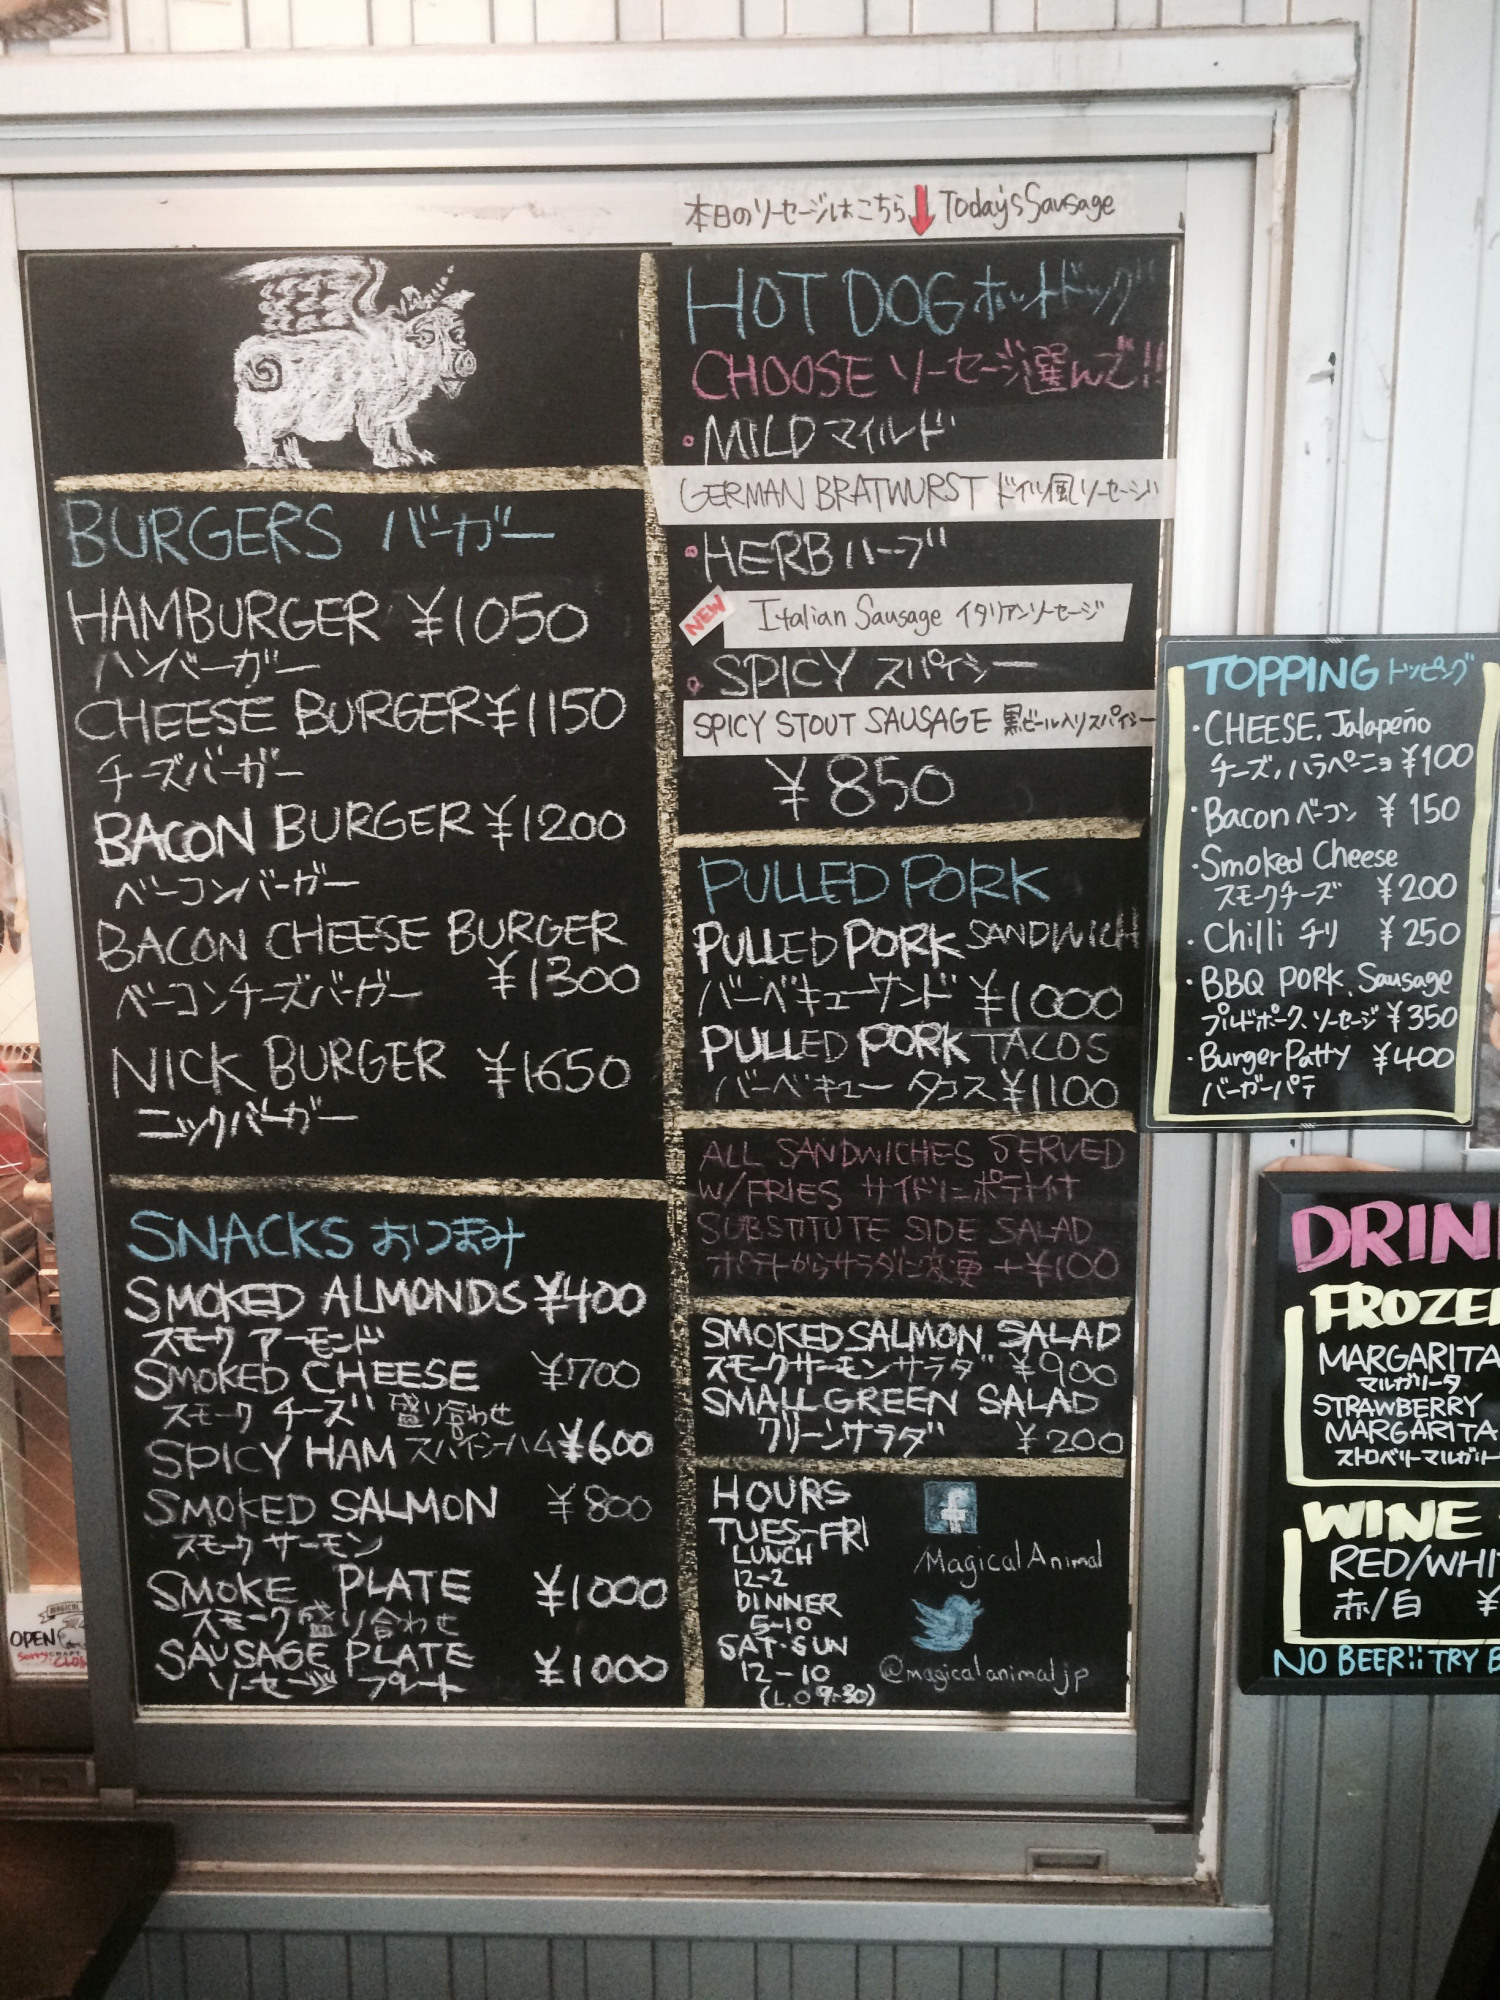 本日のソーセージはこちら Today's Sausage
HOT DOG ホットドッグ
CHOOSE ソーセージ選んで!!
・MILD マイルド
GERMAN BRATWURST ドイツ風ソーセージ
・HERB ハーブ
NEW
Italian Sausage イタリアンソーセージ
・SPICY スパイシー
SPICY STOUT SAUSAGE 黒ビール入りスパイシー
¥850
BURGERS バーガー
HAMBURGER ¥1050
ハンバーガー
CHEESE BURGER ¥1150
チーズバーガー
BACON BURGER ¥1200
ベーコンバーガー
BACON CHEESE BURGER
ベーコンチーズバーガー ¥1300
NICK BURGER ¥1650
ニックバーガー
SNACKS おつまみ
SMOKED ALMONDS ¥400
スモーク アーモンド
SMOKED CHEESE ¥700
スモーク チーズ 盛り合わせ
SPICY HAM スパイシーハム ¥600
SMOKED SALMON ¥800
スモークサーモン
SMOKE PLATE ¥1000
スモーク盛り合わせ
SAUSAGE PLATE ¥1000
ソーセージ プレート
PULLED PORK
PULLED PORK SANDWICH
バーベキューサンド ¥1000
PULLED PORK TACOS
バーベキュー タコス ¥1100
ALL SANDWICHES SERVED
W/FRIES サイドにポテト付
SUBSTITUTE SIDE SALAD
ポテトからサラダに変更 +¥100
SMOKED SALMON SALAD
スモークサーモンサラダ ¥900
SMALL GREEN SALAD
グリーンサラダ ¥200
HOURS
TUES-FRI
LUNCH
12-2
DINNER
5-10
SAT・SUN
12-10
(L.O 9:30)
f
Magical Animal
@magicalanimaljp
TOPPING トッピング
・CHEESE, Jalapeño
チーズ,ハラペーニョ ¥100
・Bacon ベーコン ¥150
・Smoked Cheese
スモークチーズ ¥200
・Chilli チリ ¥250
・BBQ PORK, Sausage
プルドポーク、ソーセージ ¥350
・Burger Patty ¥400
バーガーパテ
DRIN
FROZE
MARGARITA
マルガリータ
STRAWBERRY
MARGARITA
ストロベリーマルガリー
WINE
RED/WHI
赤/白 ¥
NO BEER!! TRY B
OPEN